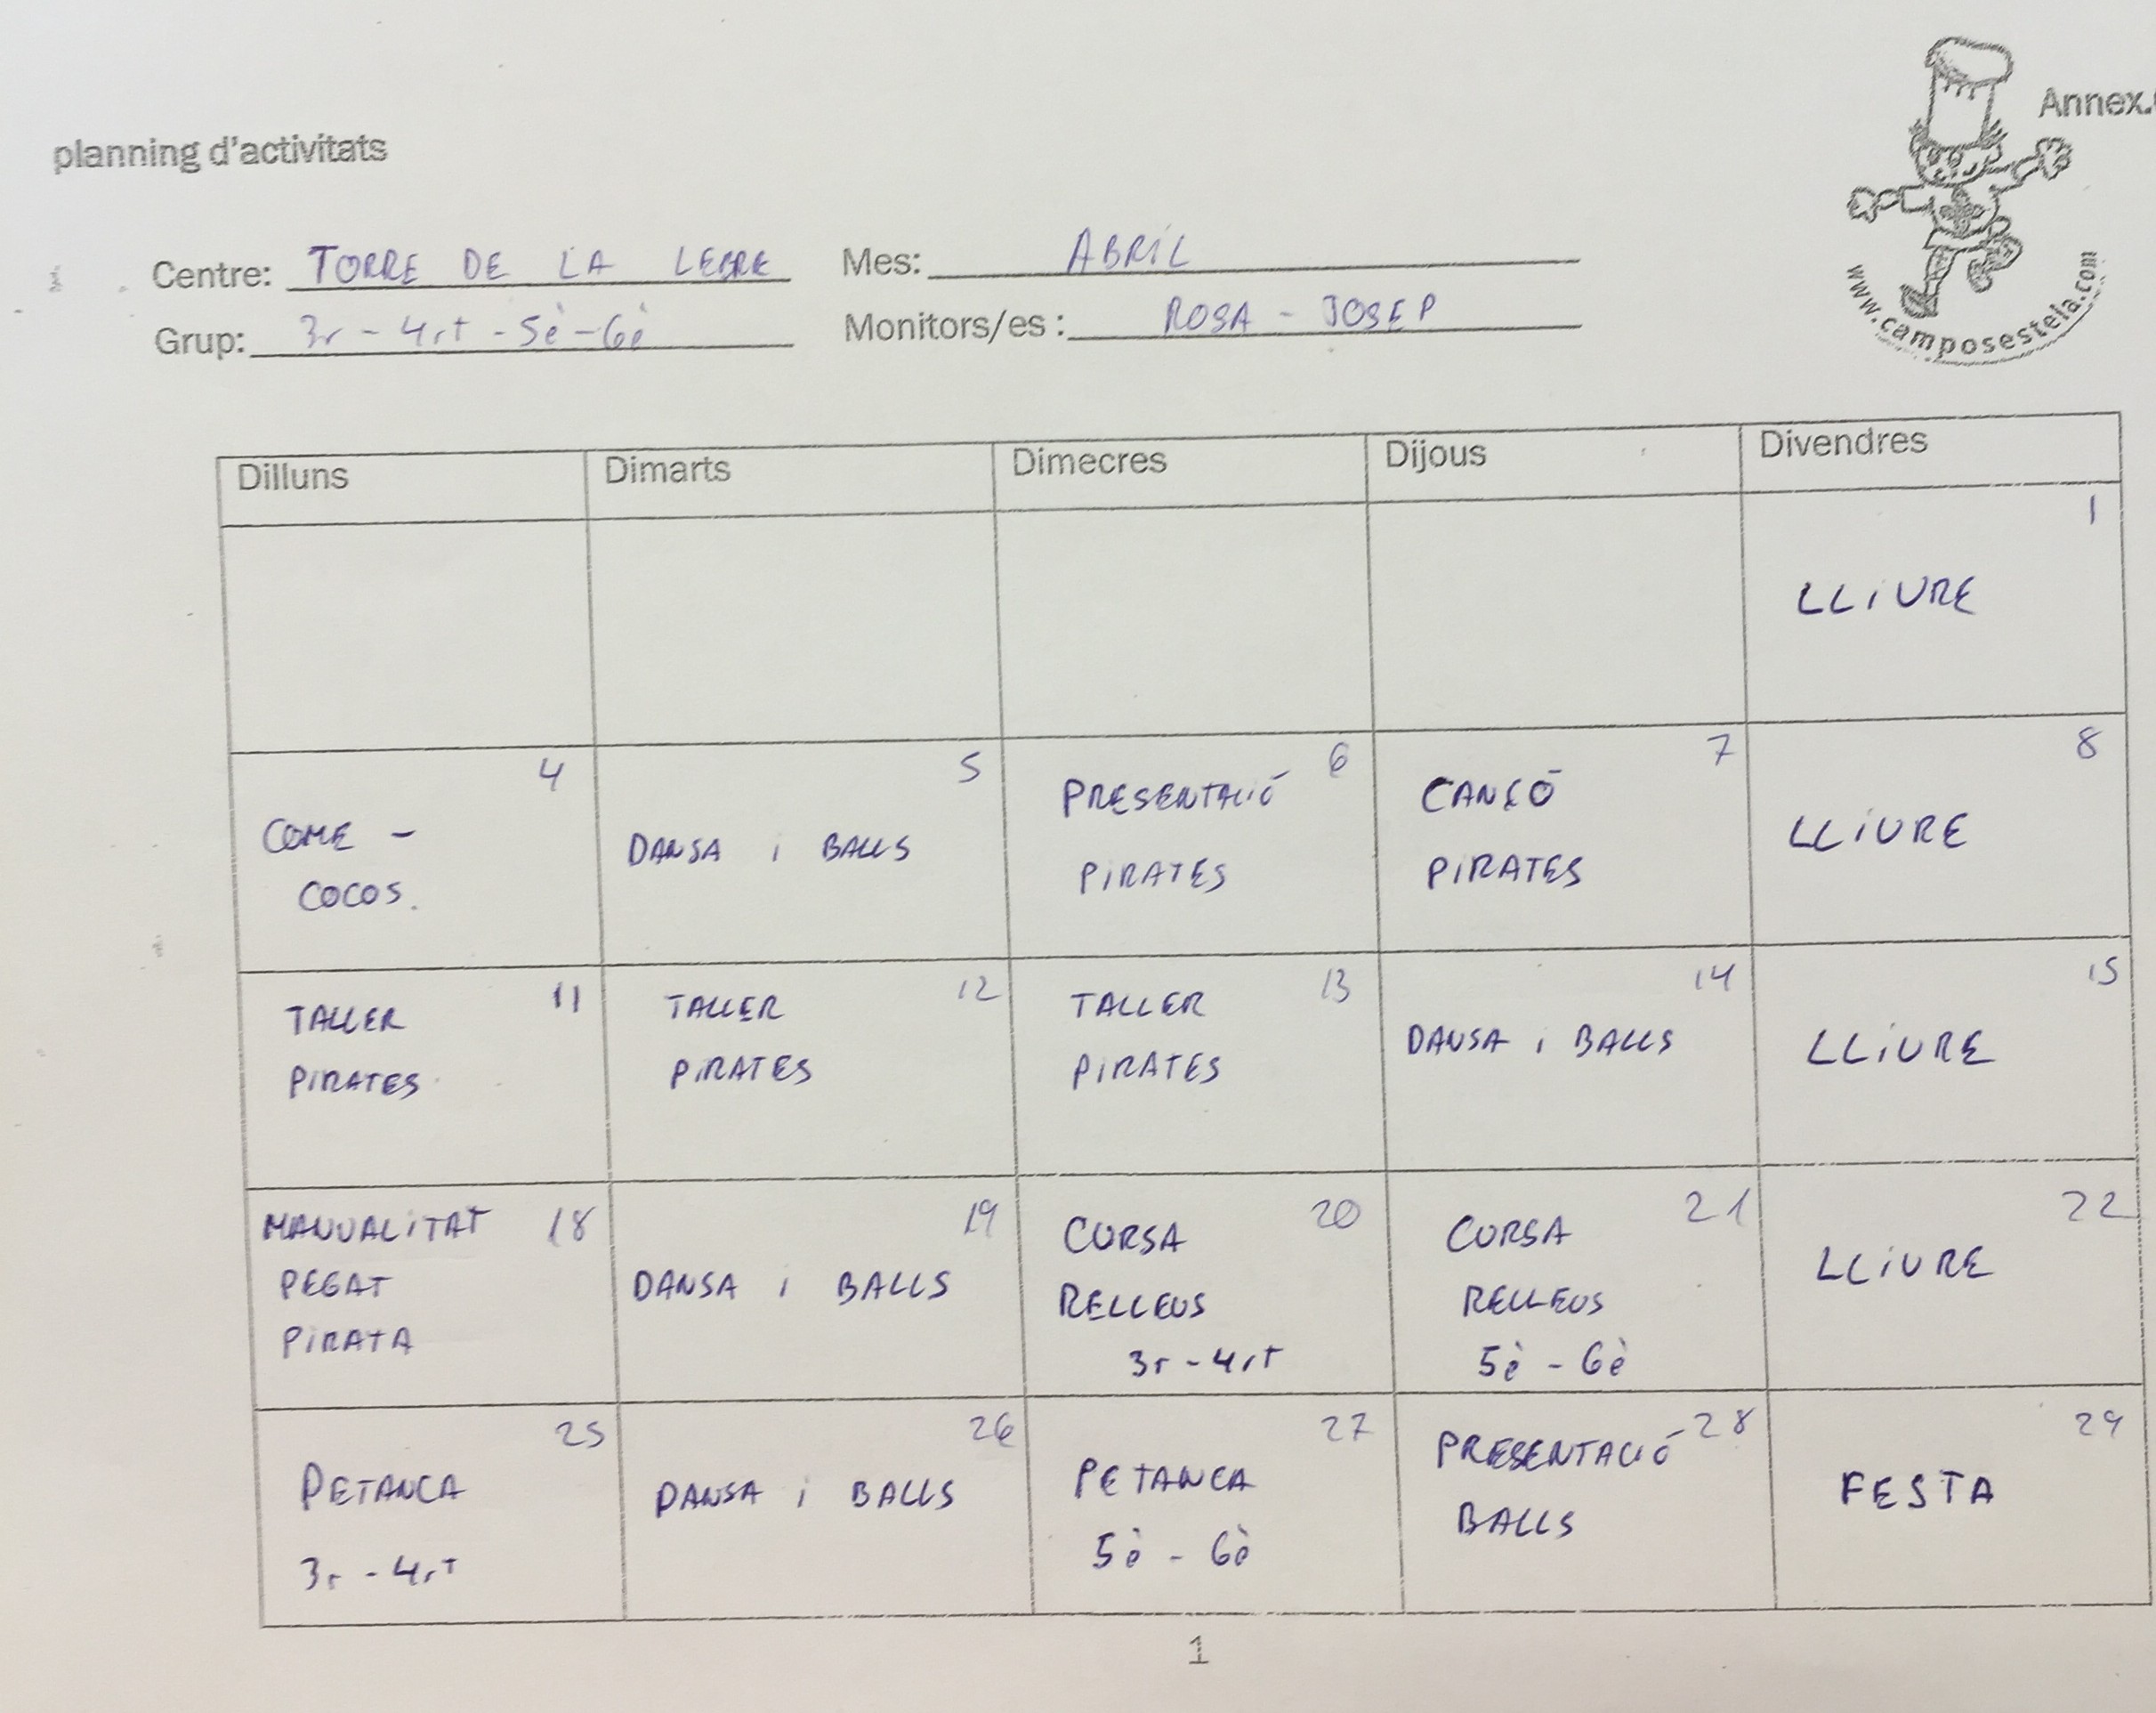 Annex.
planning d'activitats
Centre: TORRE DE LA LEBRE Mes: ABRIL
Grup: 3r - 4rt - 5è - 6è Monitors/es: ROSA - JOSEP
www.camposestela.com
Dilluns Dimarts Dimecres Dijous Divendres
1
LLIURE
4
COME -
COCOS.
5
DANSA i BALLS
6
PRESENTACIÓ
PIRATES
7
CANÇÓ
PIRATES
8
LLIURE
11
TALLER
PIRATES
12
TALLER
PIRATES
13
TALLER
PIRATES
14
DANSA i BALLS
15
LLIURE
MANUALITAT 18
PEGAT
PIRATA
19
DANSA i BALLS
20
CURSA
RELLEUS
3r - 4rt
21
CURSA
RELLEUS
5è - 6è
22
LLIURE
25
PETANCA
3r - 4rt
26
DANSA i BALLS
27
PETANCA
5è - 6è
28
PRESENTACIÓ
BALLS
29
FESTA
1